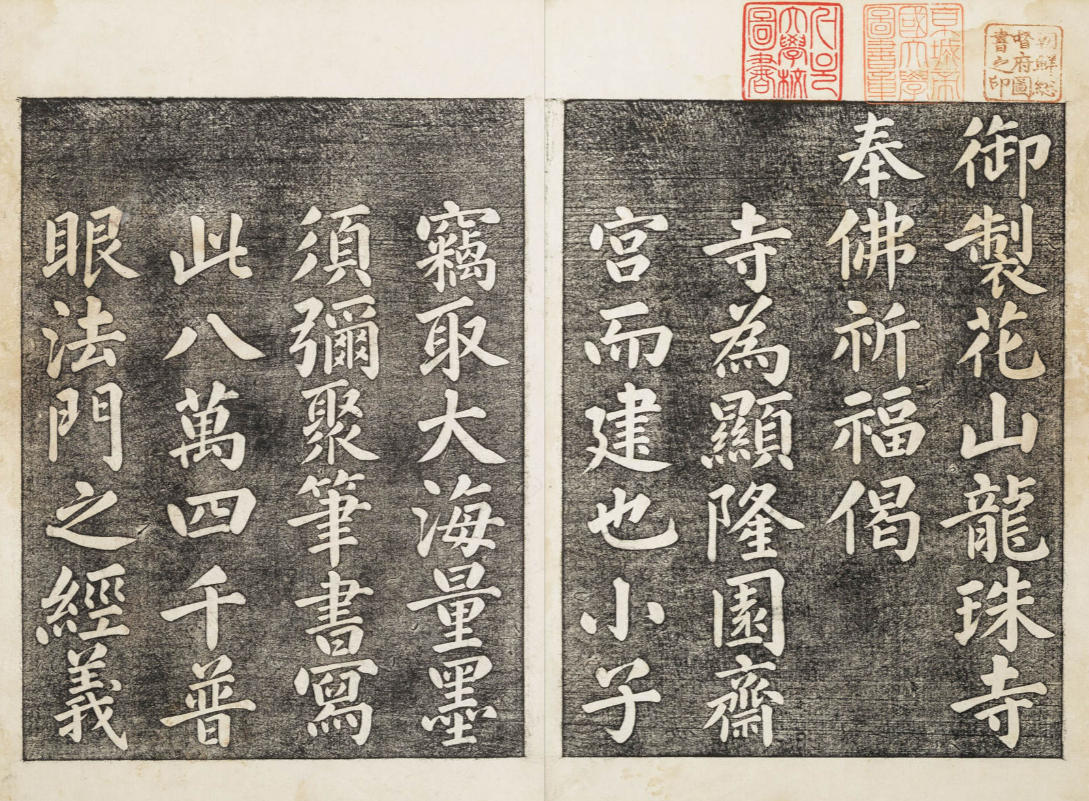 朝鮮総
督府圖
書之印
京城帝
國大學
圖書章
서울
大學校
圖書
御製花山龍珠寺
奉佛祈福偈
寺為顯隆園齋
宮而建也小子
竊取大海量墨
須彌聚筆書寫
此八萬四千普
眼法門之經義